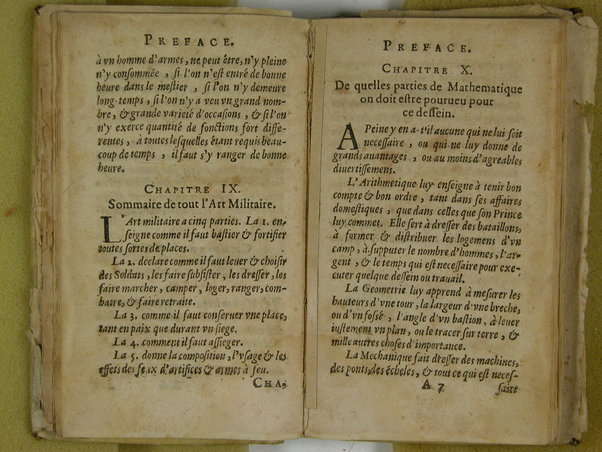 PREFACE.
à vn homme d'armes, ne peut être, n'y pleine
n'y consommée, si l'on n'est entré de bonne
heure dans le mestier, si l'on n'y demeure
long-temps, si l'on n'y a veu vn grand nom-
bre, & grande varieté d'occasions, & si l'on
n'y exerce quantité de fonctions fort diffe-
rentes, à toutes lesquelles étant requis beau-
coup de temps, il faut s'y ranger de bonne
heure.
CHAPITRE IX.
Sommaire de tout l'Art Militaire.
L'Art militaire a cinq parties. La 1. en-
seigne comme il faut bastier & fortifier
toutes sortes de places.
La 2. declare comme il faut leuer & choisir
des Soldats, les faire subsister, les dresser, les
faire marcher, camper, loger, ranger, com-
batre, & faire retraite.
La 3. comme il faut conseruer vne place,
tant en paix que durant vn siege.
La 4. comment il faut assieger.
La 5. donne la composition, l'vsage & les
effets des feux d'artifices & armes à feu.
CHA-
PREFACE.
CHAPITRE X.
De quelles parties de Mathematique
on doit estre pourueu pour
ce dessein.
A Peine y en a-t-il aucune qui ne lui soit
necessaire, ou qui ne luy donne de
grands auantages, ou au moins d'agreables
diuertissemens.
L'Arithmetique luy enseigne à tenir bon
compte & bon ordre, tant dans ses affaires
domestiques, que dans celles que son Prince
luy commet. Elle sert à dresser des bataillons,
à former & distribuer les logemens d'vn
camp, à supputer le nombre d'hommes, l'ar-
gent, & le temps qui est necessaire pour exe-
cuter quelque dessein ou trauail.
La Geometrie luy apprend à mesurer les
hauteurs d'vne tour, la largeur d'vne breche,
ou d'vn fossé, l'angle d'vn bastion, à leuer
iustement vn plan, ou le tracer sur terre, &
mille autres choses d'importance.
La Mechanique fait dresser des machines,
des ponts, des écheles, & tout ce qui est neces-
A 7 saire